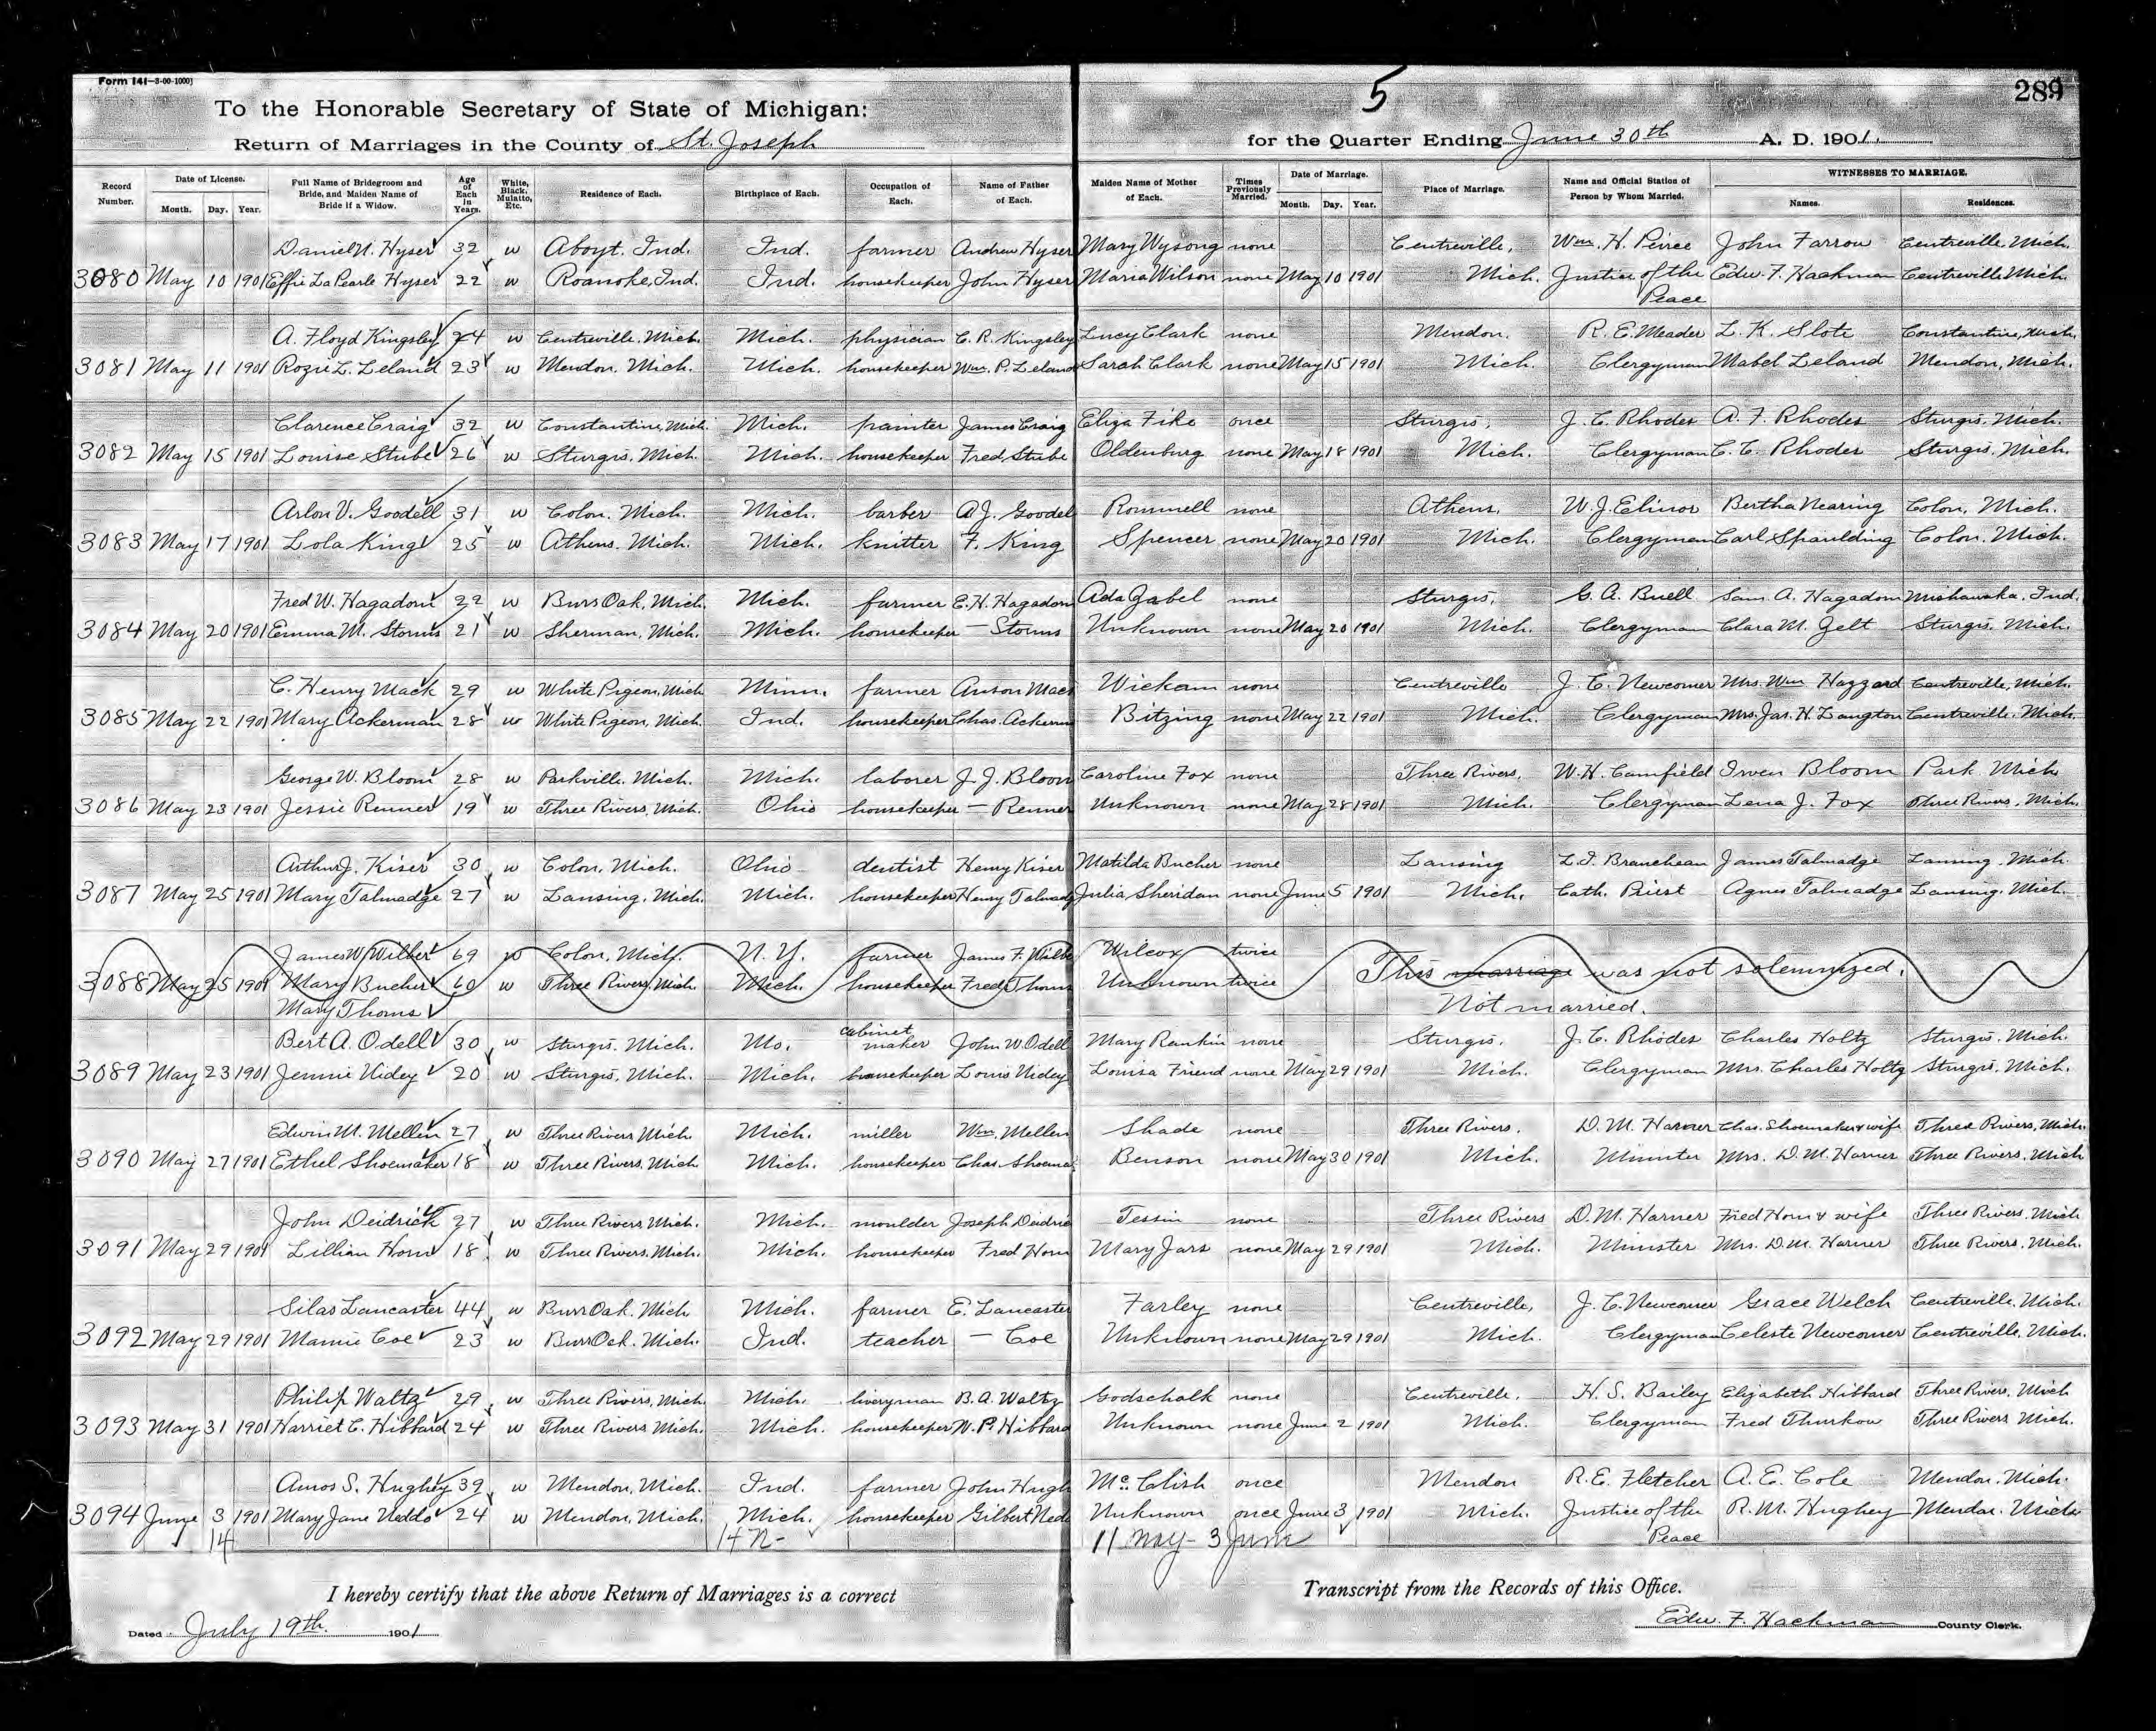 Form 141—3-00-1000)
5
289
To the Honorable Secretary of State of Michigan:
Return of Marriages in the County of St. Joseph for the Quarter Ending June 30th A. D. 1901.
Record Number. Date of License. Month. Day. Year. Full Name of Bridegroom and Bride, and Maiden Name of Bride if a Widow. Age of Each in Years. White, Black, Mulatto, Etc. Residence of Each. Birthplace of Each. Occupation of Each. Name of Father of Each. Maiden Name of Mother of Each. Times Previously Married. Date of Marriage. Month. Day. Year. Place of Marriage. Name and Official Station of Person by Whom Married. WITNESSES TO MARRIAGE. Names. Residences.
Daniel N. Hyser 32 w Aboyt. Ind. Ind. farmer Andrew Hyser Mary Wysong none Centreville, Wm. H. Peirce John Farrow Centreville, Mich.
3080 May 10 1901 Effie La Pearle Hyser 22 w Roanoke, Ind. Ind. housekeeper John Hyser Maria Wilson none May 10 1901 Mich. Justice of the Edw. F. Hackman Centreville Mich.
Peace
A. Floyd Kingsley 24 w Centreville. Mich. Mich. physician C. R. Kingsley Lucy Clark none Mendon, R. E. Meader L. K. Slote Constantine, Mich.
3081 May 11 1901 L. Leland 23 w Mendon. Mich. Mich. housekeeper Wm. P. Leland Sarah Clark none May 15 1901 Mich. Clergyman Mabel Leland Mendon, Mich.
Clarence Craig 32 w Constantine, Mich. Mich. painter James Craig Eliza Fike once Sturgis, J. C. Rhodes A. F. Rhodes Sturgis, Mich.
3082 May 15 1901 Louise Stube 26 w Sturgis. Mich. Mich. housekeeper Fred Stube Oldenburg none May 18 1901 Mich. Clergyman C. C. Rhodes Sturgis. Mich.
Arlon V. Goodell 31 w Colon. Mich. Mich. barber A. J. Goodel Rommell none Athens, W. J. Elinor Bertha Nearing Colon, Mich.
3083 May 17 1901 Lola King 25 w Athens. Mich. Mich. knitter F. King Spencer none May 20 1901 Mich. Clergyman Carl Spaulding Colon. Mich.
Fred W. Hagadorn 22 w Burr Oak, Mich. Mich. farmer E. H. Hagadorn Ada Zabel none Sturgis, G. A. Buell Sam. A. Hagadorn Mishawaka. Ind.
3084 May 20 1901 Emma M. Storms 21 w Sherman, Mich. Mich. housekeeper — Storms Unknown none May 20 1901 Mich. Clergyman Clara M. Zelt Sturgis. Mich.
C. Henry Mack 29 w White Pigeon, Mich Minn. farmer Anson Mack Wickam none Centreville J. C. Newcomer Mrs. Wm Hazzard Centreville, Mich.
3085 May 22 1901 Mary Ackerman 28 w White Pigeon, Mich. Ind. housekeeper Chas. Ackerm Bitzing none May 22 1901 Mich. Clergyman Mrs. Jas. H. Langton Centreville. Mich.
George W. Bloom 28 w Parkville. Mich. Mich. laborer J. J. Bloom Caroline Fox none Three Rivers, W. H. Camfield Irven Bloom Park Mich
3086 May 23 1901 Jessie Renner 19 w Three Rivers, Mich. Ohio housekeeper — Renner Unknown none May 28 1901 Mich. Clergyman Lena J. Fox Three Rivers, Mich.
Arthur J. Kiser 30 w Colon, Mich. Ohio dentist Henry Kiser Matilda Bucher none Lansing L. I. Brancheau James Talmadge Lansing. Mich
3087 May 25 1901 Mary Talmadge 27 w Lansing, Mich. Mich. housekeeper Henry Talmadg Julia Sheridan none June 5 1901 Mich. Cath. Priest Agnes Talmadge Lansing. Mich.
James W. Wilber 69 w Colon, Mich. N. Y. farmer James F. Wilbe Wilcox twice
3088 May 25 1901 Mary Bucher 60 w Three Rivers, Mich. Mich. housekeeper Fred Thoms Unknown twice This marriage was not solemnized.
Mary Thoms Not married.
Bert A. Odell 30 w Sturgis. Mich. Mo. cabinet maker John W. Odell Mary Rankin none Sturgis. J. C. Rhodes Charles Holtz Sturgis. Mich.
3089 May 23 1901 Jennie Nidey 20 w Sturgis, Mich. Mich. housekeeper Louis Nidey Louisa Friend none May 29 1901 Mich. Clergyman Mrs. Charles Holtz Sturgis. Mich.
Edwin M. Mellen 27 w Three Rivers Mich Mich. miller Wm. Mellen Shade none Three Rivers. D. M. Harner Chas. Shoemaker & wife Three Rivers, Mich.
3090 May 27 1901 Ethel Shoemaker 18 w Three Rivers, Mich Mich. housekeeper Chas. Shoema Benson none May 30 1901 Mich. Minister Mrs. D. M. Harner Three Rivers, Mich
John Deidrick 27 w Three Rivers, Mich. Mich. moulder Joseph Deidric Tessin none Three Rivers D. M. Harner Fred Horn & wife Three Rivers. Mich
3091 May 29 1901 Lillian Horn 18 w Three Rivers, Mich. Mich. housekeeper Fred Horn Mary Jars none May 29 1901 Mich. Minister Mrs. D. M. Harner Three Rivers, Mich.
Silas Lancaster 44 w Burr Oak. Mich Mich. farmer E. Lancaster Farley none Centreville, J. C. Newcomer Grace Welch Centreville. Mich.
3092 May 29 1901 Mamie Coe 23 w Burr Oak. Mich. Ind. teacher — Coe Unknown none May 29 1901 Mich. Clergyman Celeste Newcomer Centreville, Mich.
Philip Waltz 29 w Three Rivers, Mich. Mich. liveryman B. A. Waltz Godschalk none Centreville. H. S. Bailey Elizabeth Hibbard Three Rivers. Mich
3093 May 31 1901 Harriet C. Hibbard 24 w Three Rivers Mich. Mich. housekeeper W. P. Hibbard Unknown none June 2 1901 Mich. Clergyman Fred Thurkow Three Rivers Mich.
Amos S. Hughey 39 w Mendon, Mich. Ind. farmer John Hugh Mc. Clish once Mendon R. E. Fletcher A. E. Cole Mendon. Mich.
3094 June 3 1901 Mary Jane Neddo 24 w Mendon, Mich. Mich. housekeeper Gilbert Ned Unknown once June 3 1901 Mich. Justice of the R. M. Hughey Mendon. Mich
14 14 N- 11 May - 3 June Peace
I hereby certify that the above Return of Marriages is a correct Transcript from the Records of this Office.
Dated July 19th. 1901 Edw. F. Hackman County Clerk.